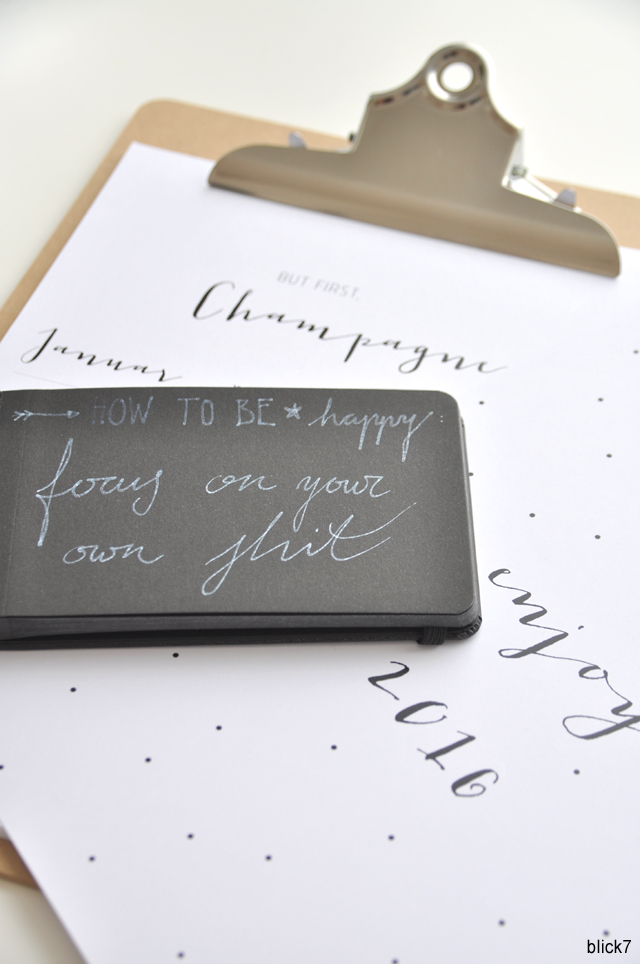 BUT FIRST,
Champagne
Januar
HOW TO BE happy
focus on your
own shit
enjoy
2016
blick7